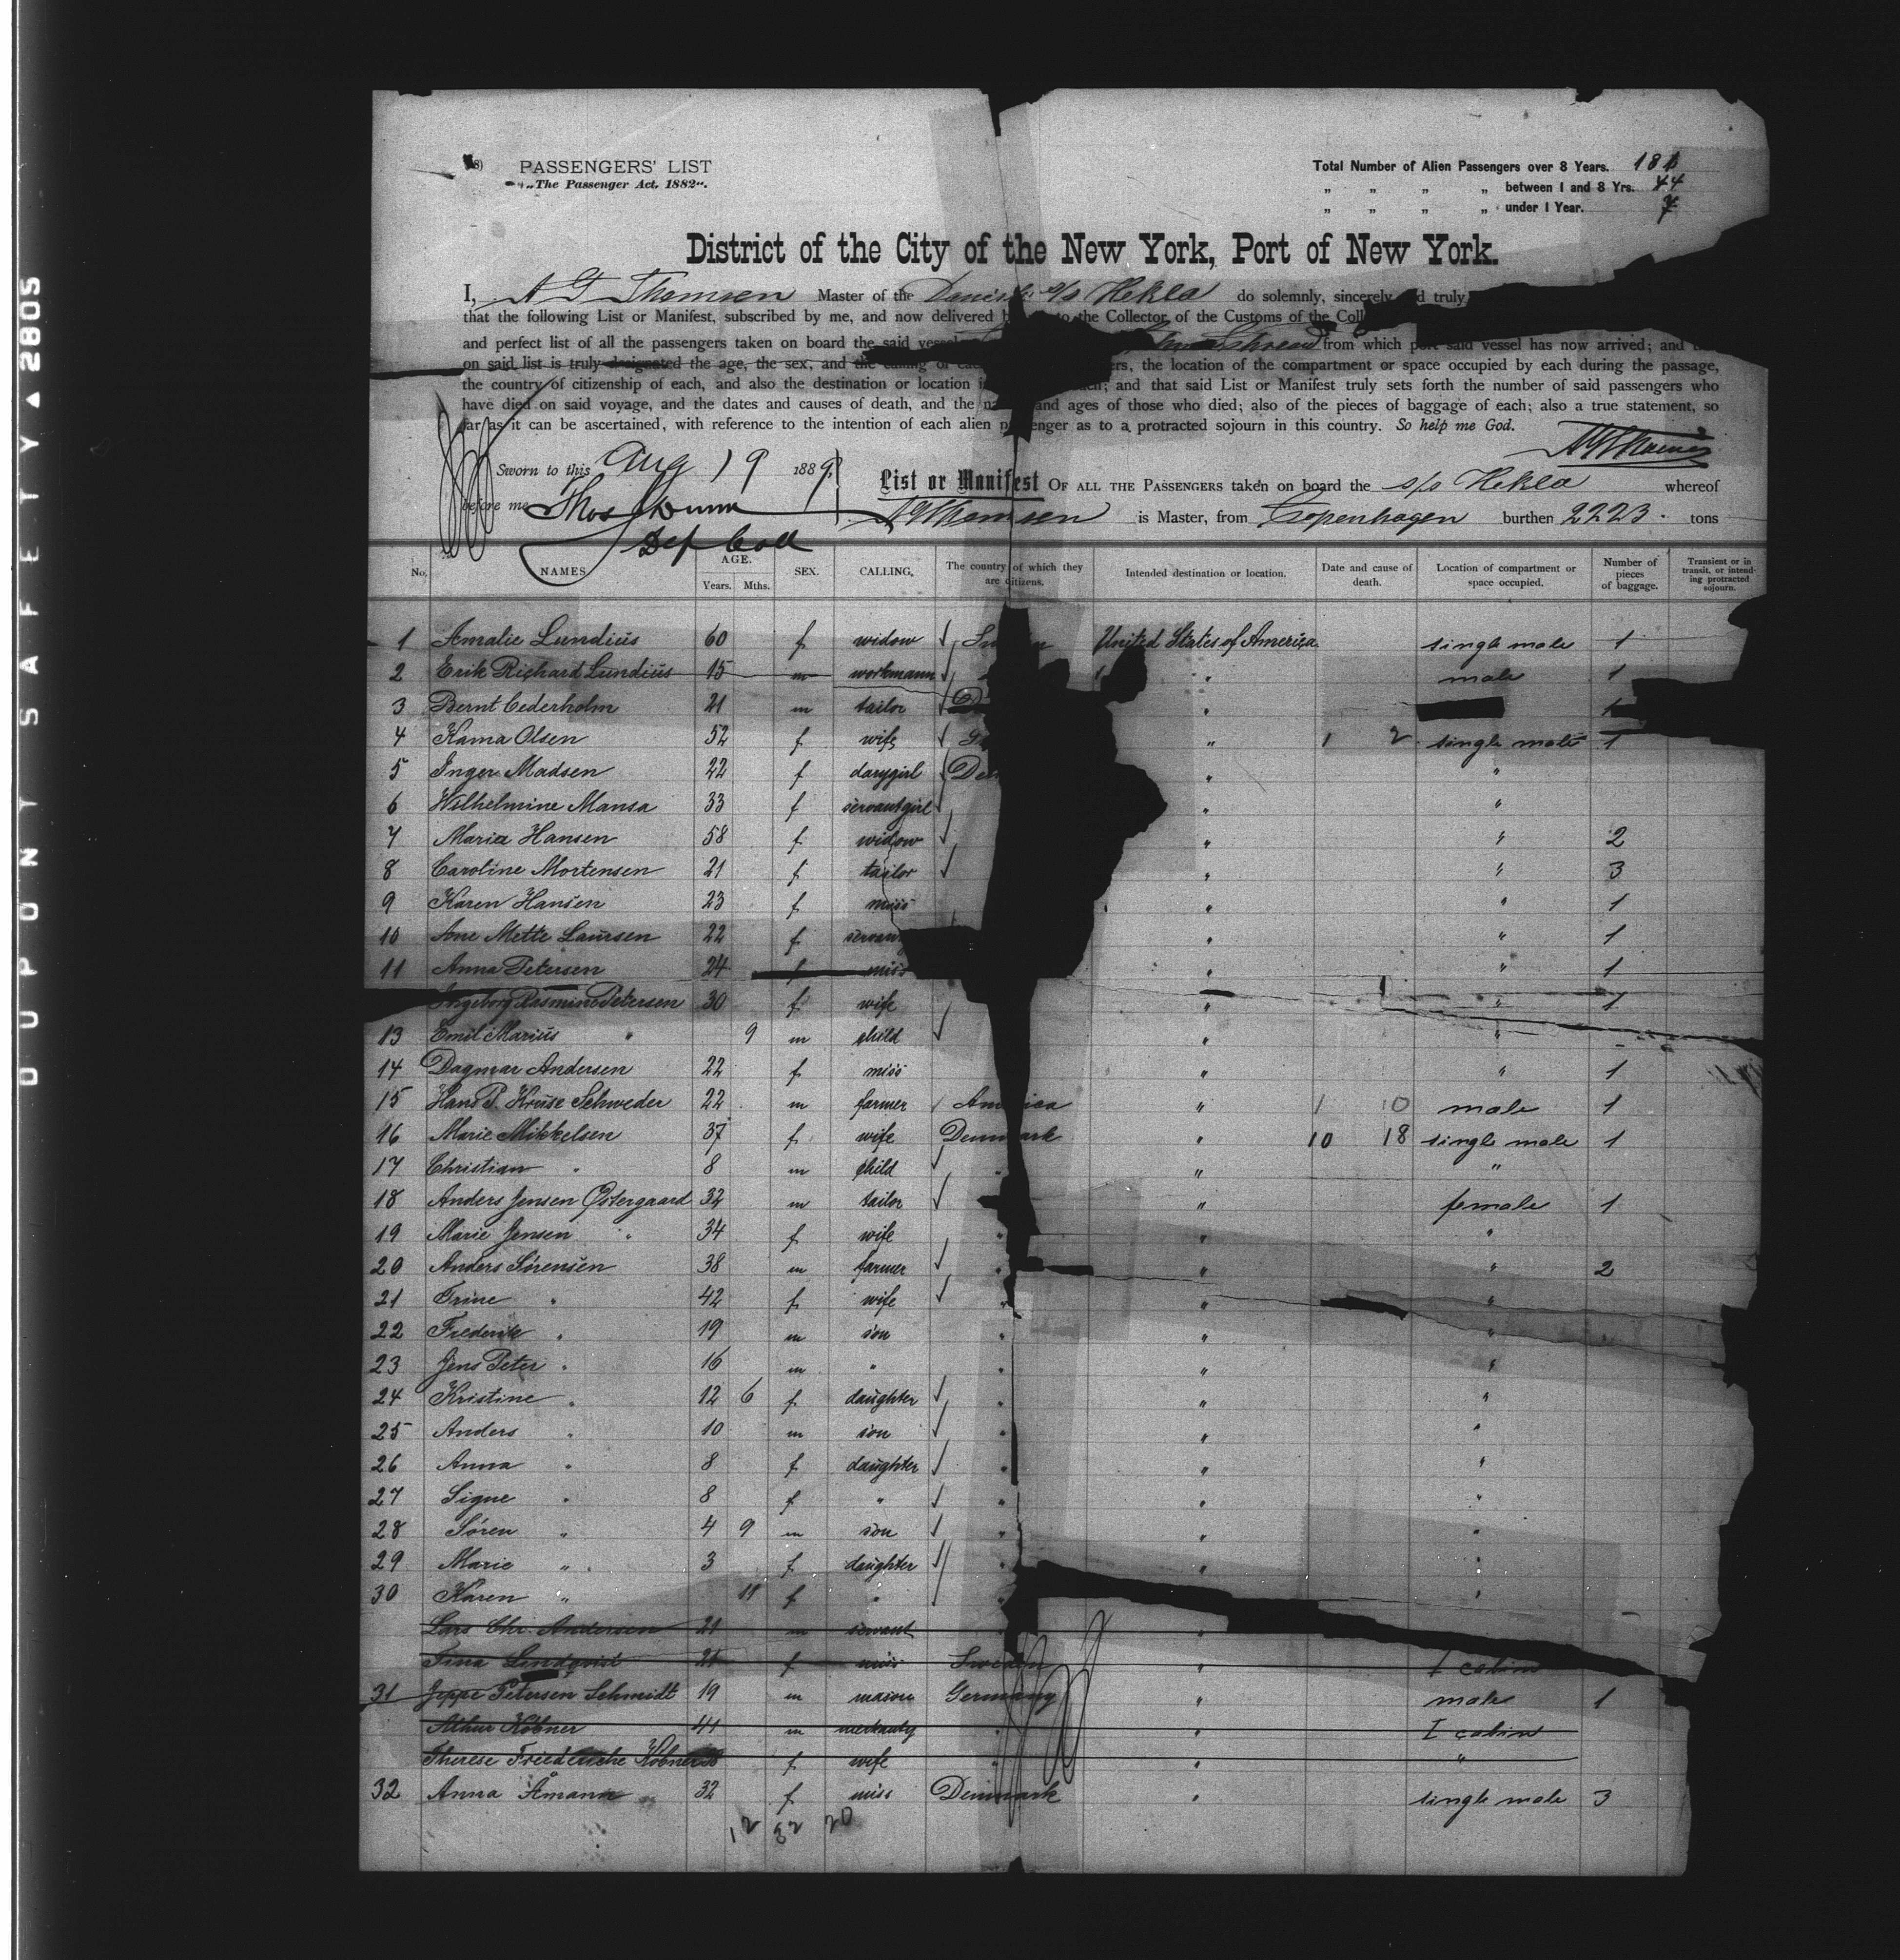 DUPONT SAFETY ▲ 2805
PASSENGERS' LIST
„The Passenger Act, 1882“.
Total Number of Alien Passengers over 8 Years.
„ „ „ „ between 1 and 8 Yrs. 44
„ „ „ „ under 1 Year. 7
District of the City of the New York, Port of New York.
I, A G Thomsen Master of the Danish s/s Hekla do solemnly, sincerely and truly
that the following List or Manifest, subscribed by me, and now delivered to the Collector of the Customs of the Coll
and perfect list of all the passengers taken on board the said vessel from which port said vessel has now arrived; and
on said list is truly designated the age, the sex, and the calling of the location of the compartment or space occupied by each during the passage,
the country of citizenship of each, and also the destination or location and that said List or Manifest truly sets forth the number of said passengers who
have died on said voyage, and the dates and causes of death, and the and ages of those who died; also of the pieces of baggage of each; also a true statement, so
far as it can be ascertained, with reference to the intention of each alien passenger as to a protracted sojourn in this country. So help me God.
Sworn to this Aug 19 1889
before me Thos Dunn
Dep Coll
List or Manifest OF ALL THE PASSENGERS taken on board the s/s Hekla whereof
A G Thomsen is Master, from Copenhagen burthen 2223 tons
No. NAMES. AGE. Years. Mths. SEX. CALLING. The country of which they are citizens. Intended destination or location. Date and cause of death. Location of compartment or space occupied. Number of pieces of baggage. Transient or in transit, or intending protracted sojourn.
1 Amalie Lundius 60 f widow United States of America single male 1
2 Erik Richard Lundius 15 m workmann " male 1
3 Bernt Cederholm 21 m tailor " 1
4 Kama Olsen 52 f wife " 1 2 single male 1
5 Inger Madsen 22 f darygirl " "
6 Wilhelmine Mansa 33 f servantgirl " "
7 Maria Hansen 58 f widow " " 2
8 Caroline Mortensen 21 f tailor " " 3
9 Karen Hansen 23 f miss " " 1
10 Ane Mette Laursen 22 f " " 1
11 Anna Petersen 24 f miss " " 1
Ingeborg Rasmine Petersen 30 f wife " " 1
13 Emil Marius " 9 m child " "
14 Dagmar Andersen 22 f miss " " 1
15 Hans P. Kruse Schweder 22 m farmer America " 1 10 male 1
16 Marie Mikkelsen 37 f wife Denmark " 10 18 single male 1
17 Christian " 8 m child " " "
18 Anders Jensen Østergaard 32 m tailor " female 1
19 Marie Jensen " 34 f wife " " "
20 Anders Sørensen 38 m farmer " " " 2
21 Trine " 42 f wife " " "
22 Frederik " 19 m son " " "
23 Jens Peter " 16 m " " " "
24 Kristine " 12 6 f daughter " " "
25 Anders " 10 m son " " "
26 Anna " 8 f daughter " " "
27 Signe " 8 f " " " "
28 Søren " 4 9 m son " " "
29 Marie " 3 f daughter " " "
30 Karen " 11 f " "
Lars Chr. Andersen 21 m servant " "
Tina Lindqvist 21 f miss Sweden " I cabin
31 Jeppe Petersen Schmidt 19 m mason Germany " male 1
Athur Köbner 41 m " " I cabin
Therese Friedericke Köbner f wife " " "
32 Anna Åmann 32 f miss Denmark " single male 3
12 32 20